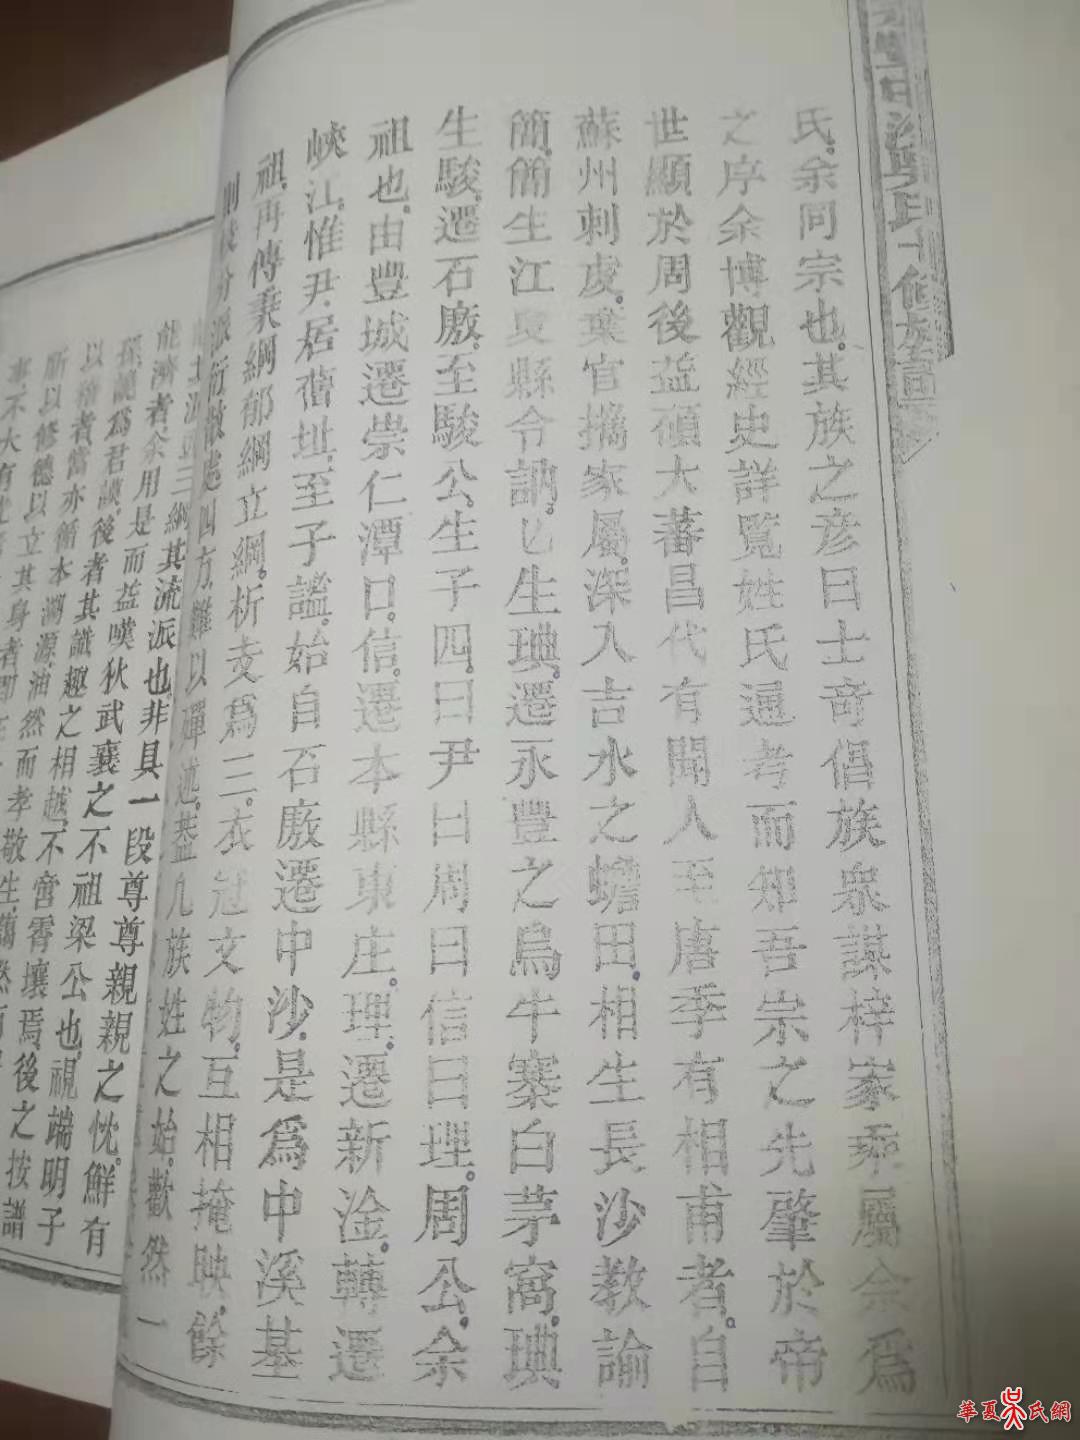 永豐中沙吳氏十修族譜
氏余同宗也其族之彦曰士奇倡族衆謀梓家乘屬余爲
之序余博觀經史詳覧姓氏通考而知吾宗之先肇於帝
世顯於周後益碩大蕃昌代有聞人至唐季有相甫者自
蘇州刺䖍葉官攜家屬深入吉水之蟾田相生長沙教諭
簡簡生江夏縣令訥訥生㻮遷永豐之烏牛寨白茅窩㻮
生駿遷石廒至駿公生子四曰尹曰周曰信曰理周公余
祖也由豐城遷崇仁潭口信遷本縣東庄理遷新淦轉遷
峽江惟尹居舊址至子謐始自石廒遷中沙是爲中溪基
祖再傳秉綱郁綱立綱析支爲三衣冠文物互相掩映餘
則分派衍散處四方難以殫述蓋凡族姓之始歡然一
其流派也非具一段尊尊親親之忱鮮有
能濟者余用是而益嘆狄武襄之不祖梁公也視端明子
孫認爲君謨後者其識趣之相越不啻霄壤焉後之按譜
以稽者當亦循本溯源油然而孝敬生藹然
所以修德以立其身者即在
事不大有
華夏吳氏網